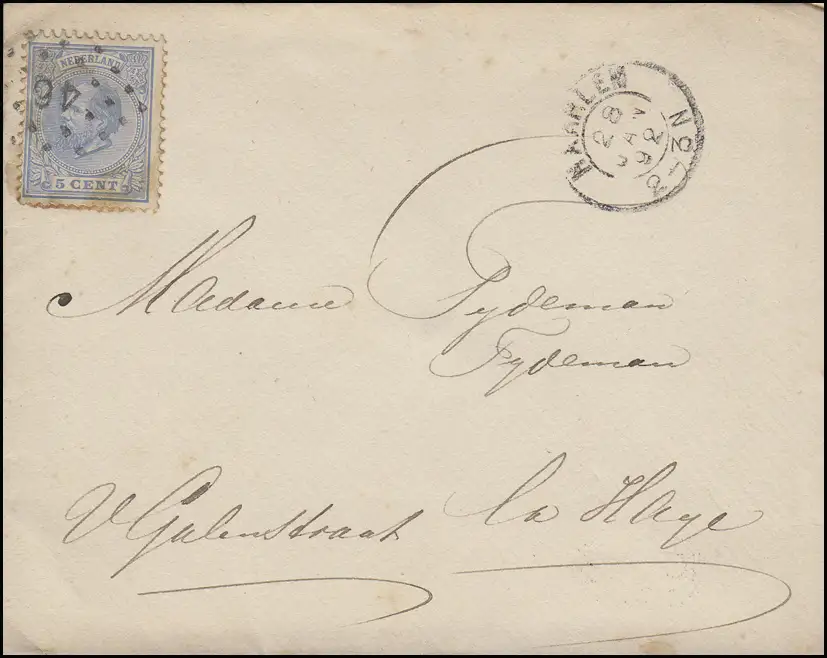 NEDERLAND
46
5 CENT
HAARLEM
28 JAN 92
Madame Tydeman
Tydeman
V Galenstraat la Haye